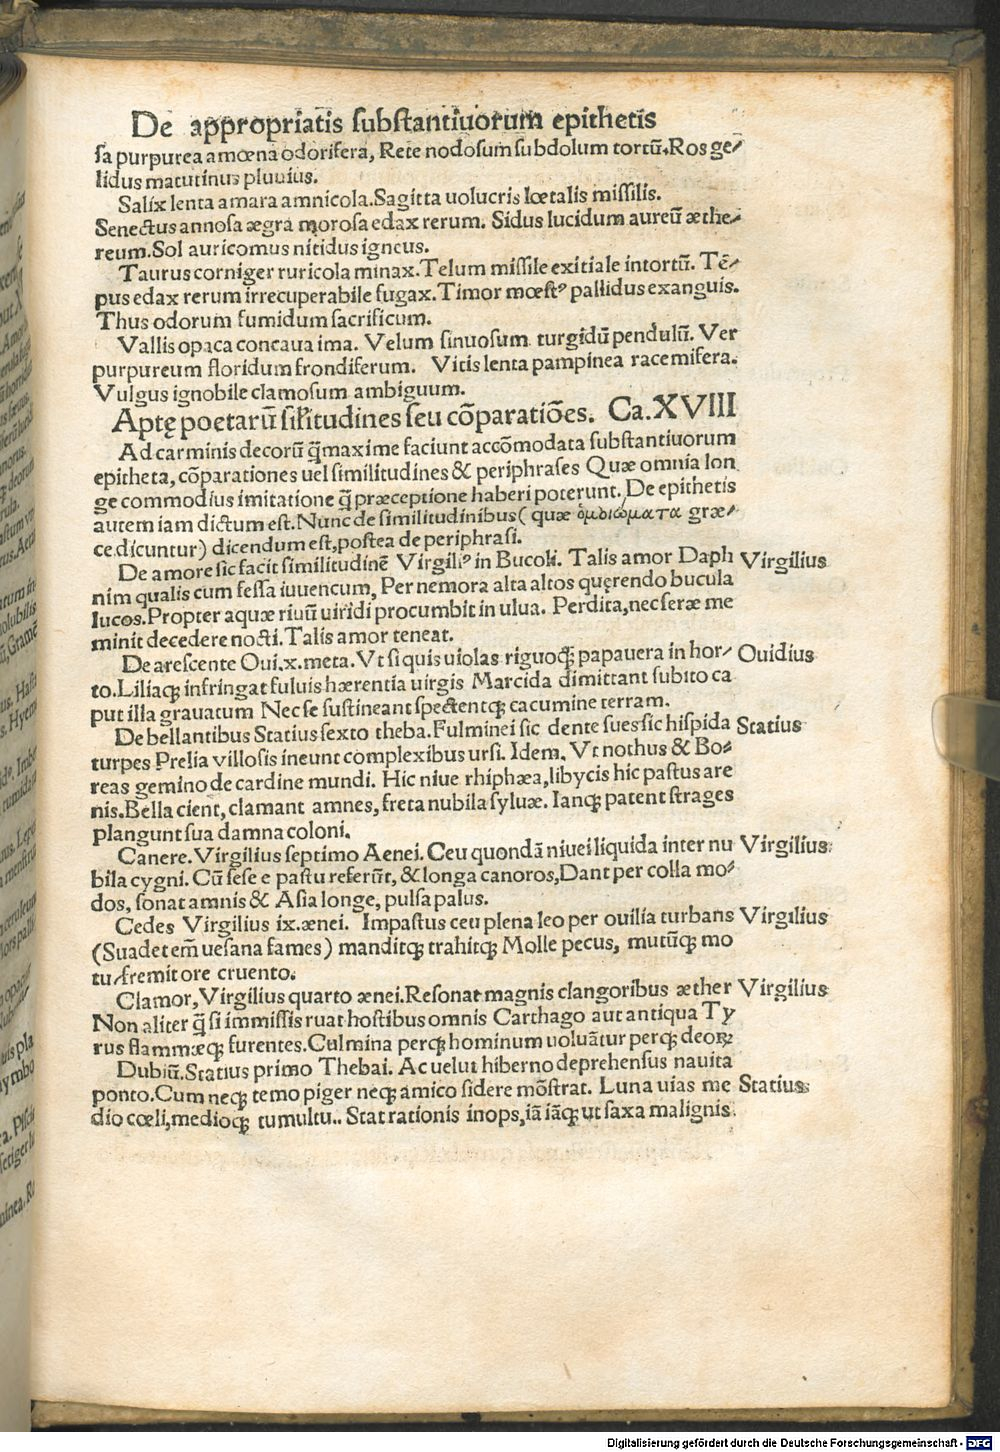 De appropriatis ſubſtantiuorum epithetis
ſa purpurea amœna odorifera, Rete nodoſum ſubdolum tortū. Ros ge⸗
lidus matutinus pluuius.
Salix lenta amara amnicola. Sagitta uolucris lœtalis miſſilis.
Senectus annoſa ægra moroſa edax rerum. Sidus lucidum aureū æthe⸗
reum. Sol auricomus nitidus igneus.
Taurus corniger ruricola minax. Telum miſſile exitiale intortū. Tē⸗
pus edax rerum irrecuperabile fugax. Timor mœſtꝰ pallidus exanguis.
Thus odorum fumidum ſacrificum.
Vallis opaca concaua ima. Velum ſinuoſum turgidū pendulū. Ver
purpureum floridum frondiferum. Vitis lenta pampinea racemifera.
Vulgus ignobile clamoſum ambiguum.
Aptę poetarū ſiĺitudines ſeu cōparatiōes. Ca. XVIII
Ad carminis decorū q̄ maxime faciunt accōmodata ſubſtantiuorum
epitheta, cōparationes uel ſimilitudines & periphraſes Quæ omnia lon
ge commodius imitatione q̄ præceptione haberi poterunt. De epithetis
autem iam dictum eſt. Nunc de ſimilitudinibus ( quæ ὁμοιώματα græ⸗
ce dicuntur) dicendum eſt, poſtea de periphraſi.
De amore ſic facit ſimilitudinē Virgiliꝰ in Bucoli. Talis amor Daph
Virgilius
nim qualis cum feſſa iuuencum, Per nemora alta altos quęrendo bucula
lucos. Propter aquæ riuū uiridi procumbit in ulua. Perdita, nec ſeræ me
minit decedere nocti. Talis amor teneat.
De areſcente Oui. x. meta. Vt ſi quis uiolas riguoq; papauera in hor⸗
Ouidius
to. Liliaq; infringat fuluis hærentia uirgis Marcida dimittant ſubito ca
put illa grauatum Nec ſe ſuſtineant ſpectentq; cacumine terram.
De bellantibus Statius ſexto theba. Fulminei ſic dente ſues ſic hiſpida
Statius
turpes Prelia villoſis ineunt complexibus urſi. Idem. Vt nothus & Bo⸗
reas gemino de cardine mundi. Hic niue rhiphæa, libycis hic paſtus are
nis. Bella cient, clamant amnes, freta nubila ſyluæ. Ianq; patent ſtrages
plangunt ſua damna coloni.
Canere. Virgilius ſeptimo Aenei. Ceu quondā niuei liquida inter nu
Virgilius
bila cygni. Cū ſeſe e paſtu referūt, & longa canoros, Dant per colla mo⸗
dos, ſonat amnis & Aſia longe, pulſa palus.
Cedes Virgilius ix. ænei. Impaſtus ceu plena leo per ouilia turbans
Virgilius
(Suadet em̄ ueſana fames) manditq; trahitq; Molle pecus, mutūq; mo
tu, fremit ore cruento.
Clamor, Virgilius quarto ænei. Reſonat magnis clangoribus æther
Virgilius
Non aliter q̄ ſi immiſſis ruat hoſtibus omnis Carthago aut antiqua Ty
rus flammæq; furentes. Culmina perq; hominum uoluātur perq; deoꝝ
Dubiū. Statius primo Thebai. Ac uelut hiberno deprehenſus nauita
ponto. Cum neq; temo piger neq; amico ſidere mōſtrat. Luna uias me
Statius
dio cœli, medioq; tumultu.. Stat rationis inops, iā iāq; ut ſaxa malignis
Digitalisierung gefördert durch die Deutsche Forschungsgemeinschaft - DFG